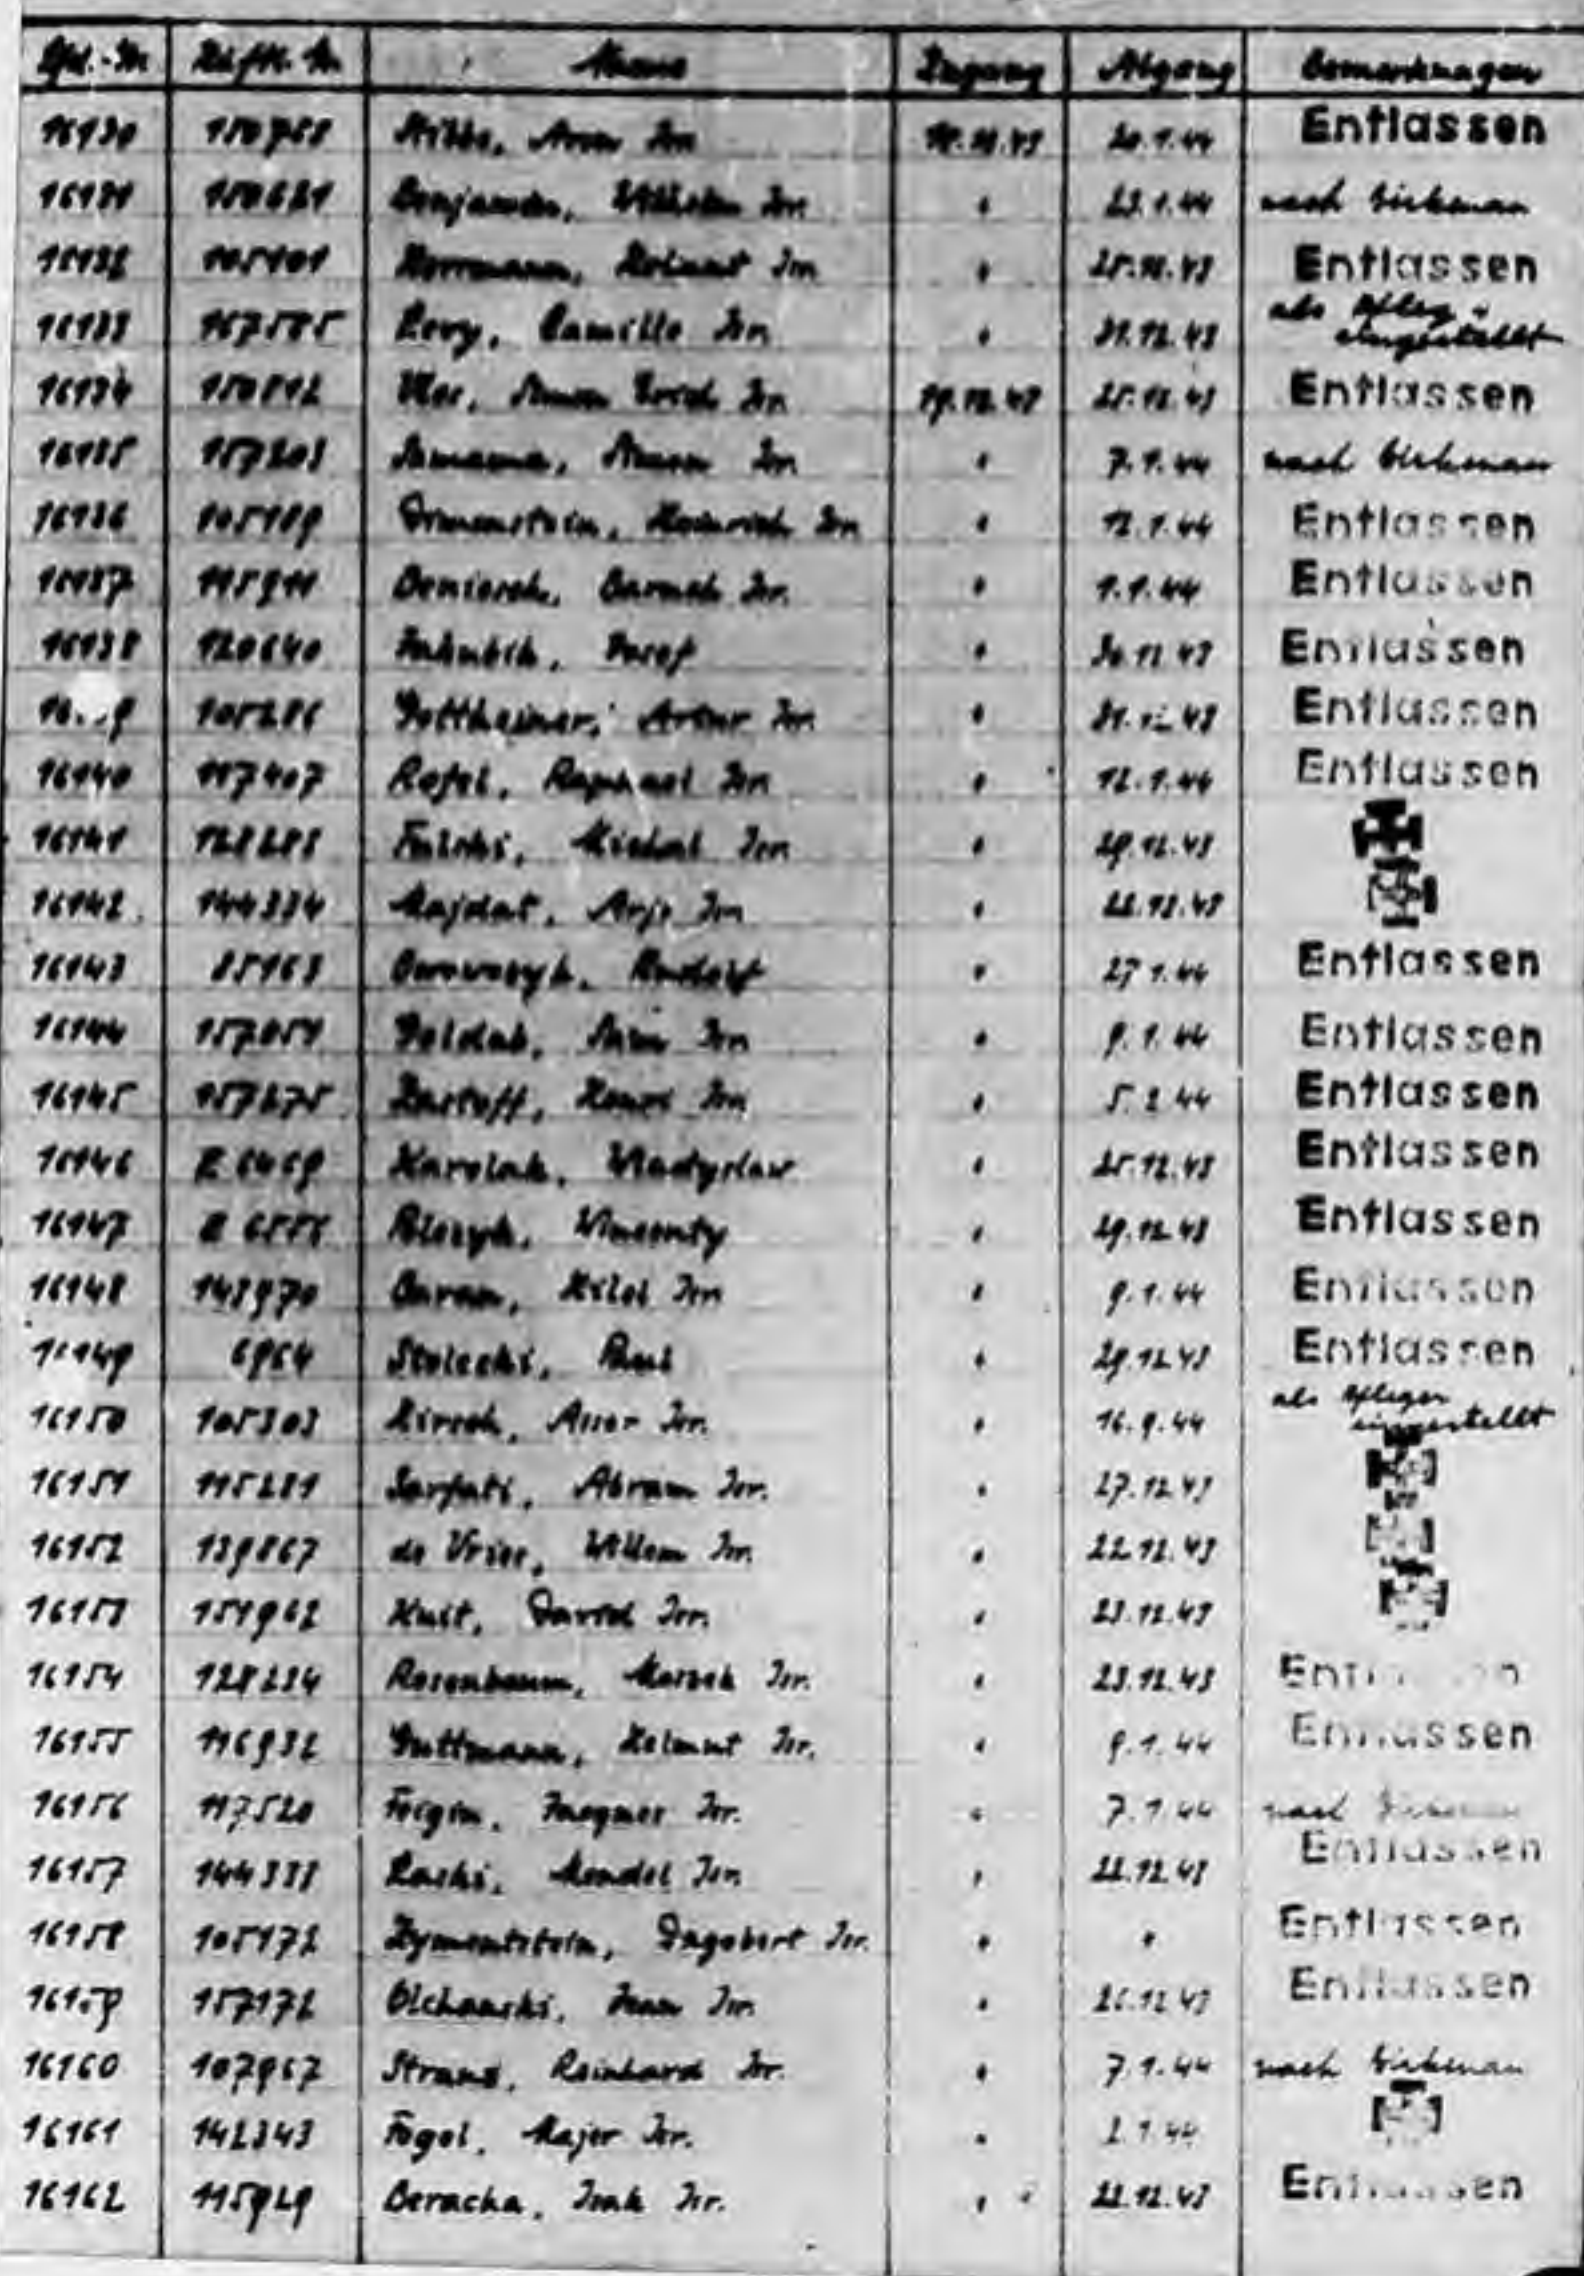 Lfd.-Nr Häftl. Nr. Name Zugang Abgang Bemerkungen
16130 150788 Aron Isr. 20.1.44 Entlassen
16131 150621 Benjamin, Wilhelm Isr. " 23.1.44 nach Birkenau
16132 105101 Herrmann, Helmut Isr. " Entlassen
16133 167585 Levy, Camille Isr. " 31.12.43 als Pfleger
eingestellt
16134 150812 Simon Erich Isr. 19.12.43 25.12.43 Entlassen
16135 157203 Simon Isr. " 7.1.44 nach Birkenau
16136 105109 Heinrich Isr. " 12.1.44 Entlassen
16137 115911 Baruch Isr. " 1.1.44 Entlassen
16138 120640 Jakubik, Josef " 30.12.43 Entlassen
105286 Gottheiner, Artur Isr. " 31.12.43 Entlassen
16140 117407 Rafel, Raphael Isr. " 12.1.44 Entlassen
16141 128288 Michal Isr. " 29.12.43
16142 144334 Majdat, Isr. " 22.12.43
16143 85163 Rudolf " 27.1.44 Entlassen
16144 157051 Isr. " 9.1.44 Entlassen
16145 157275 Henri Isr. " 5.2.44 Entlassen
16146 Z 6469 Karolak, Wladyslaw " 25.12.43 Entlassen
16147 Wincenty " 29.12.43 Entlassen
16148 143970 Baran, Hilel Isr. " 9.1.44 Entlassen
16149 6964 Stolecki, Paul " 29.12.43 Entlassen
16150 105303 Hirsch, Isr. " 16.9.44 als Pfleger
eingestellt
16151 115281 Sarfati, Abram Isr. " 27.12.43
16152 139867 de Vries, Willem Isr. " 22.12.43
16153 151962 Kuit, David Isr. " 23.12.43
16154 128234 Rosenbaum, Isr. " 23.12.43 Entlassen
16155 116932 Guttmann, Helmut Isr. " 9.1.44 Entlassen
16156 117520 Feigin, Jacques Isr. " 7.1.44 nach Birkenau
16157 144338 Laski, Mendel Isr. " 22.12.43 Entlassen
16158 105172 Zymentstein, Dagobert Isr. " " Entlassen
16159 157172 Olchanski, Jean Isr. " 26.12.43 Entlassen
16160 107967 Straus, Reinhard Isr. " 7.1.44 nach Birkenau
16161 142343 Fogel, Majer Isr. " 2.1.44
16162 115929 Beracha, Isak Isr. " 22.12.43 Entlassen